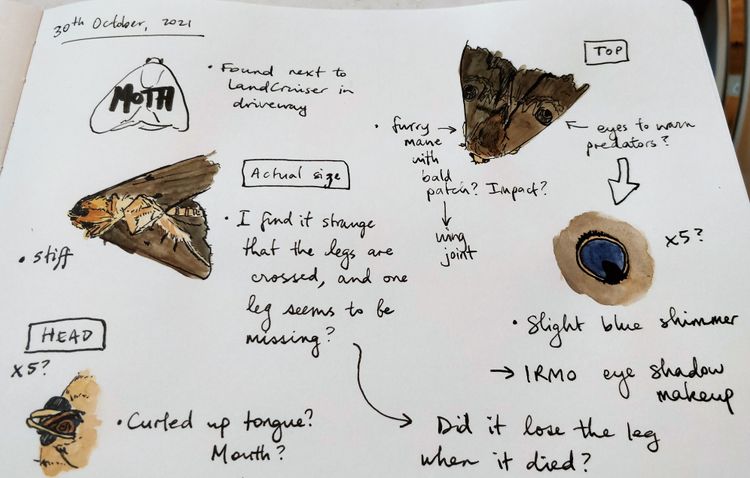 30th October, 2021
MOTH
• Found next to
LandCruiser in
driveway
TOP
• furry
mane
with
bald
patch? Impact?
wing
joint
eyes to warn
predators?
Actual size
• I find it strange
that the legs are
crossed, and one
leg seems to be
missing?
• stiff
x5?
• Slight blue shimmer
→ IRMO eye shadow
makeup
HEAD
x5?
• Curled up tongue?
Mouth?
Did it lose the leg
when it died?